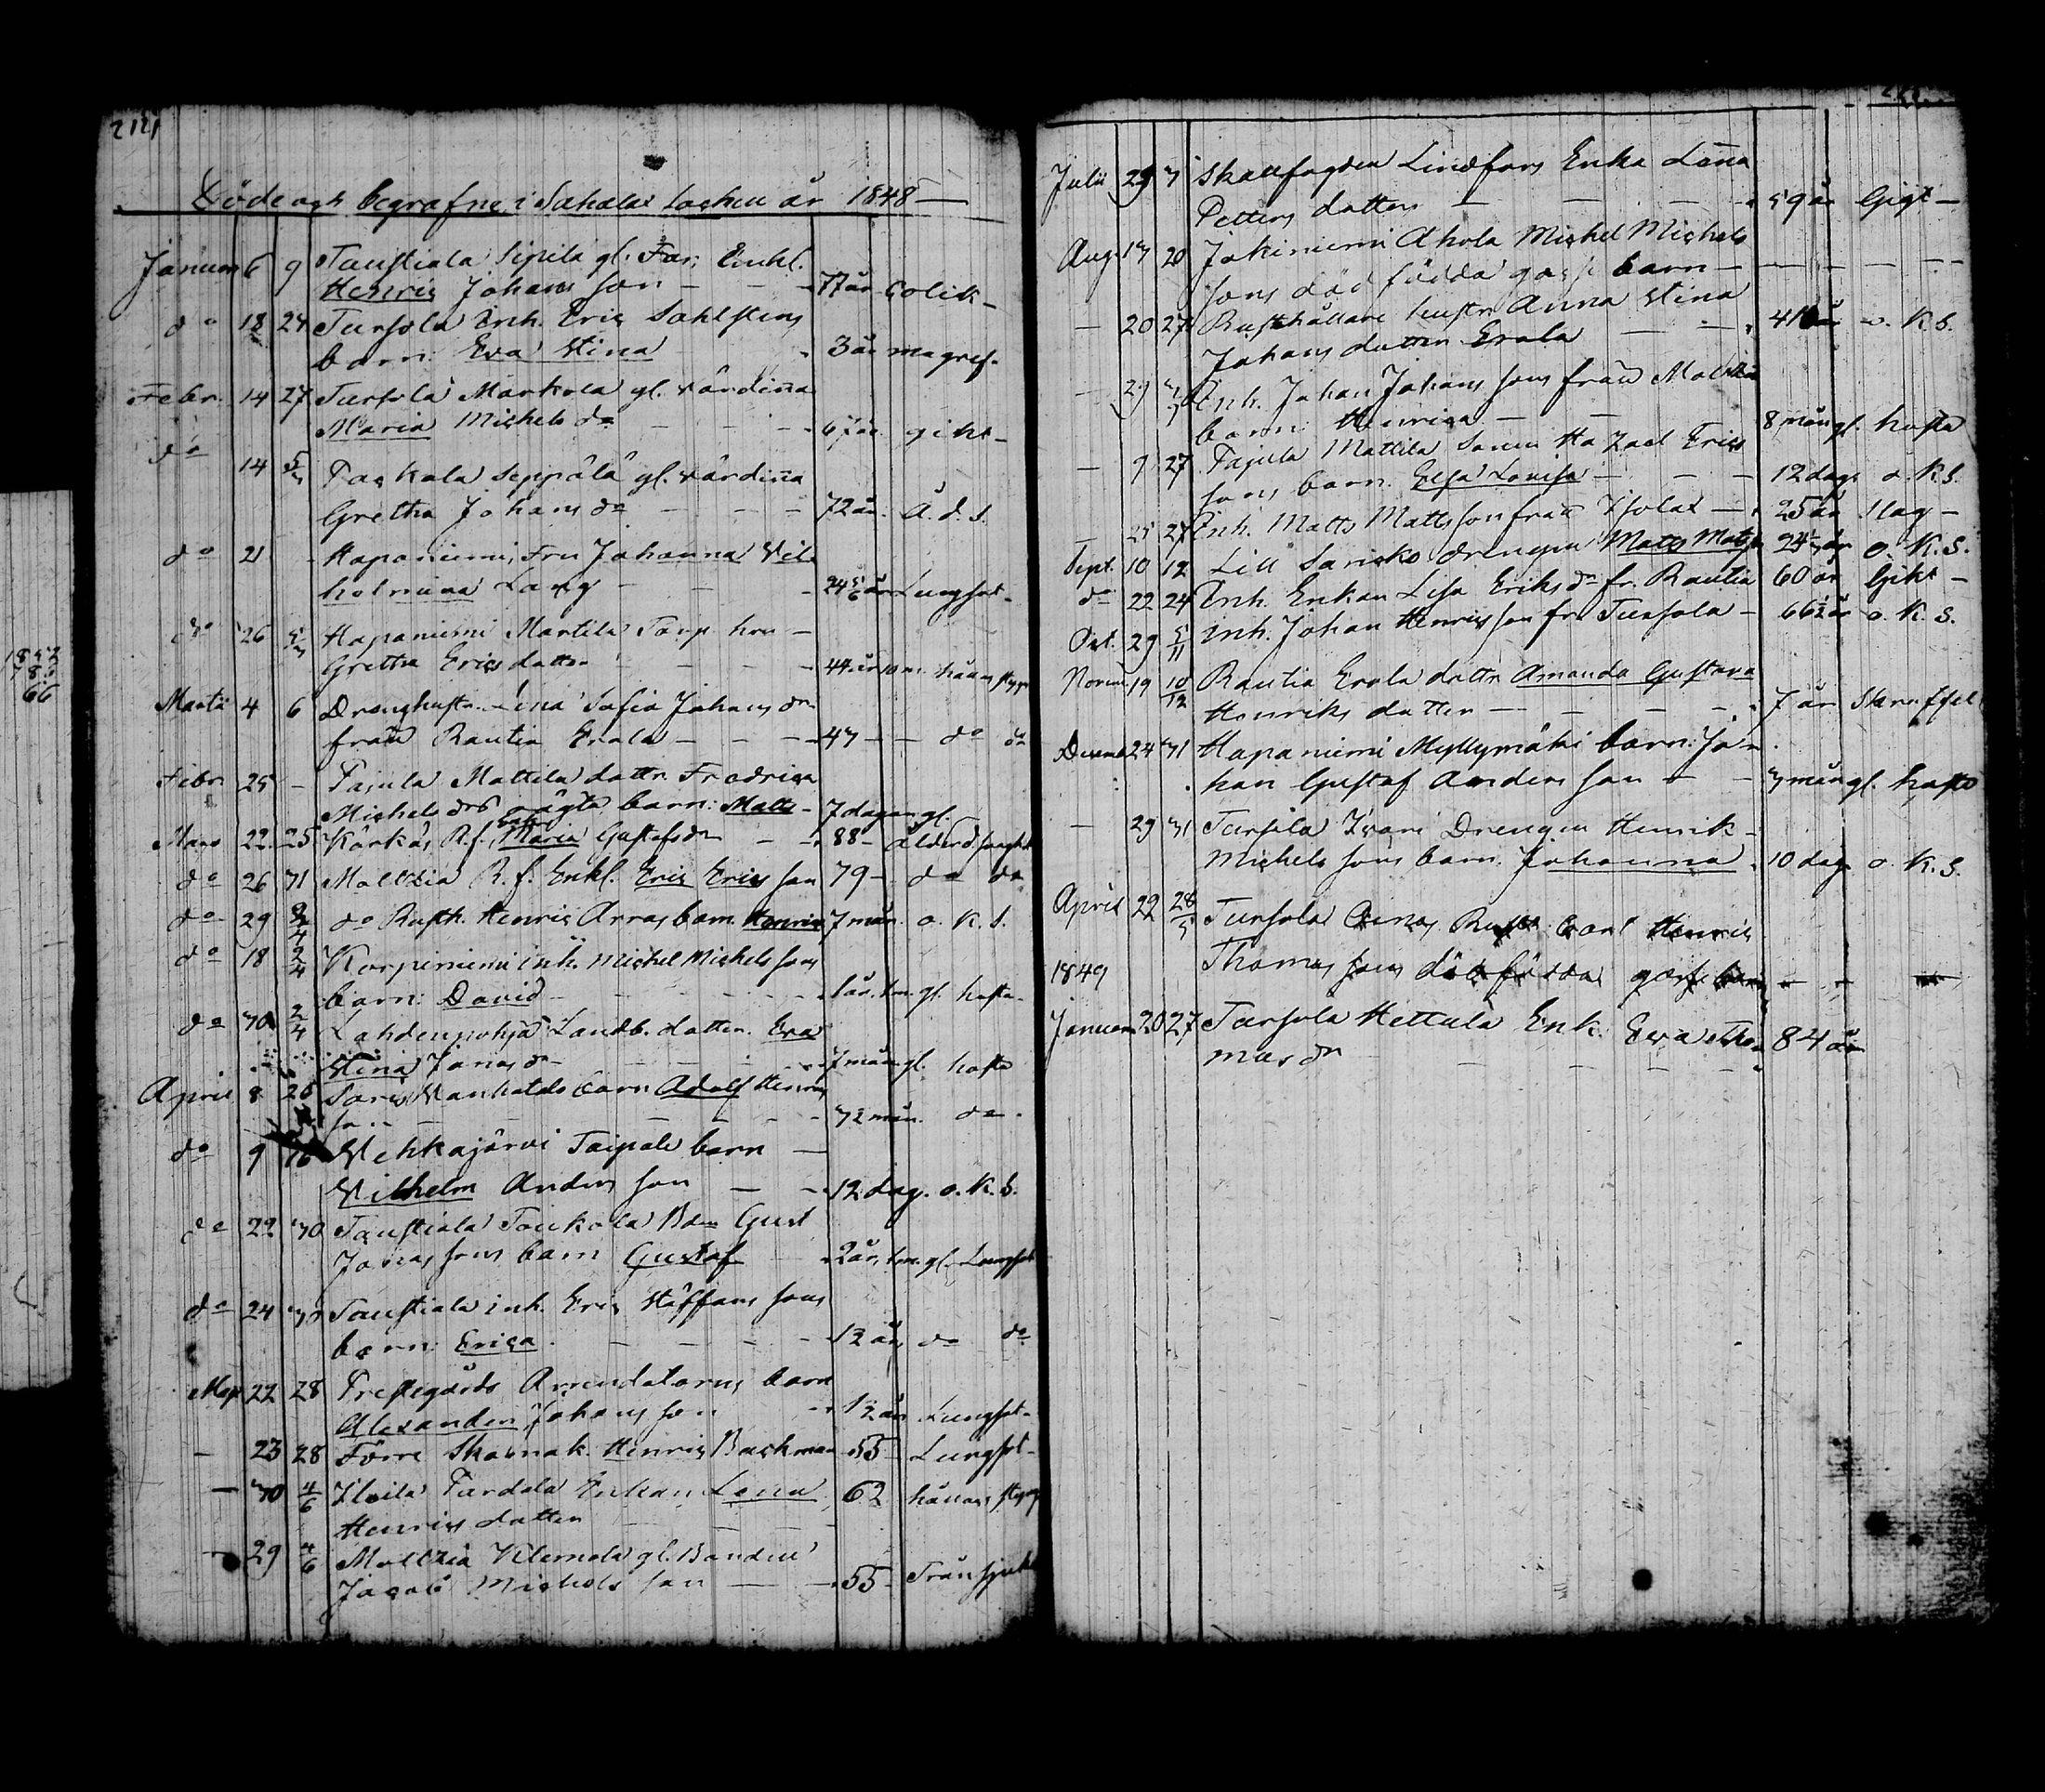 Döde och begrafne i Sahalax Sochen år 1848
Januari 6 9 Taustiala Sipilä gl. Far, Enkl.
Henric Johans son 77 år Colik
do 18 24 Tursola Enh. Eric Sahlstens
barn: Eva Stina 3 år magref.
Febr. 14 27 Tursola Markola gl. värdiña
Maria Michels dr 67 år gikt
do 14 5/3 Packala Seppälä gl. värdiña
Gretha Johans dr 72 år Å. d. s.
do 21 - Haponiemi, Fru Johanna Vil
helmina Lang Lungsot
do 26 5/3 Haponiemi Martila Torp. hru
Gretha Erics dotter 44 år
Martii 4 6 Dränghustr. Lena Sofia Johans dr
från Rautia Erola 47 do do
Febr. 25 - Pajula Mattila dottr. Fredrica
Michels drs oägta barn: Matts 7 dagar gl.
Mars 22 25 Kärkäs R.f. Maria Gustafs dr 88
do 26 31 Moltzia R.f. Enkl. Eric Erics son 79 do do
do 29 2/4 do Rusth. Henric Arras barn Henric 7 mån. o. K. S.
do 18 2/4 Korpiniemi inh. Michel Michels sons
barn: David 1 år, 1 m. gl. hosta
do 30 2/4 Lahdenpohja Landb. dotter Eva
Stina Jonas dr 7 mån gl. hosta
April 8 26 barn Adolf Henrics
son 32 mån. do
do 9 16 Vehkajärvi Taipale barn
Vilhelm Anders son 12 dag. o. K. S.
do 22 30 Taustiala Toukola Bdn Gust
Jonas sons barn Gustaf 2 år, 1 m. gl. Lungsot
do 24 30 Taustiala inh. Eric Staffans sons
barn: Erica do do
Maj 22 28 Prestgårds Arrendatorns barn
Alexander Johans son Lungsot
- 23 28 Förre Skarnak. Henric Backman 55 Lungsot
- 30 4/6 Ilvila Pardala Enkan Lena 62
Henrics dotter
- 29 4/6 Moltzia Klemola gl. Bonden
Jacob Michels son 55
Julii 29 3 Skallfogden Lindfors Enka Lena
Petters dotter 59 år Gigt
Aug. 13 20 Jokiniemi Ahola Michel Michels
sons död födda gosse barn
- 20 27 Rusthållare hustr. Anna Stina
Johans dotter Erola o. K. S.
- 29 3/9 Enh. Johan Johans sons från Moltzia
barn: Henrica 8 mån gl. hosta
- 9 27 Pajula Mattila Sonen Ha Zael Erics
sons barn: Elsa Lovisa 12 dagr o. K. S.
- 25 27 Inh. Matts Matts son från Isolax 25 år slag
Sept. 10 12 Lill Sarcko drengen Matts Matsson o. K. S.
do 22 24 Enh. Enkan Lisa Eriks dr fr. Rautia 60 år Gikt
Oct. 29 5/11 Inh. Johan Henrics son fr. Tursola 66½ år o. K. S.
Novem. 19 10/12 Rautia Erola dottr. Amanda Gustava
Henriks dotter 7 år Skarffel
Decemb 24 31 Haponiemi Myllymäki barn: Jo
han Gustaf Anders son 3 mån gl. hosta
- 29 31 Tursola Ivari Drengen Henrik
Michels sons barn. Johanna 10 dag o. K. S.
April 22 28/5 Tursola Rusth. Carl Henric
Thomas sons dödfödda goss barn
1849
Januari 20 27 Tursola Hettula Enk. Eva Tho
mas dr 84 år